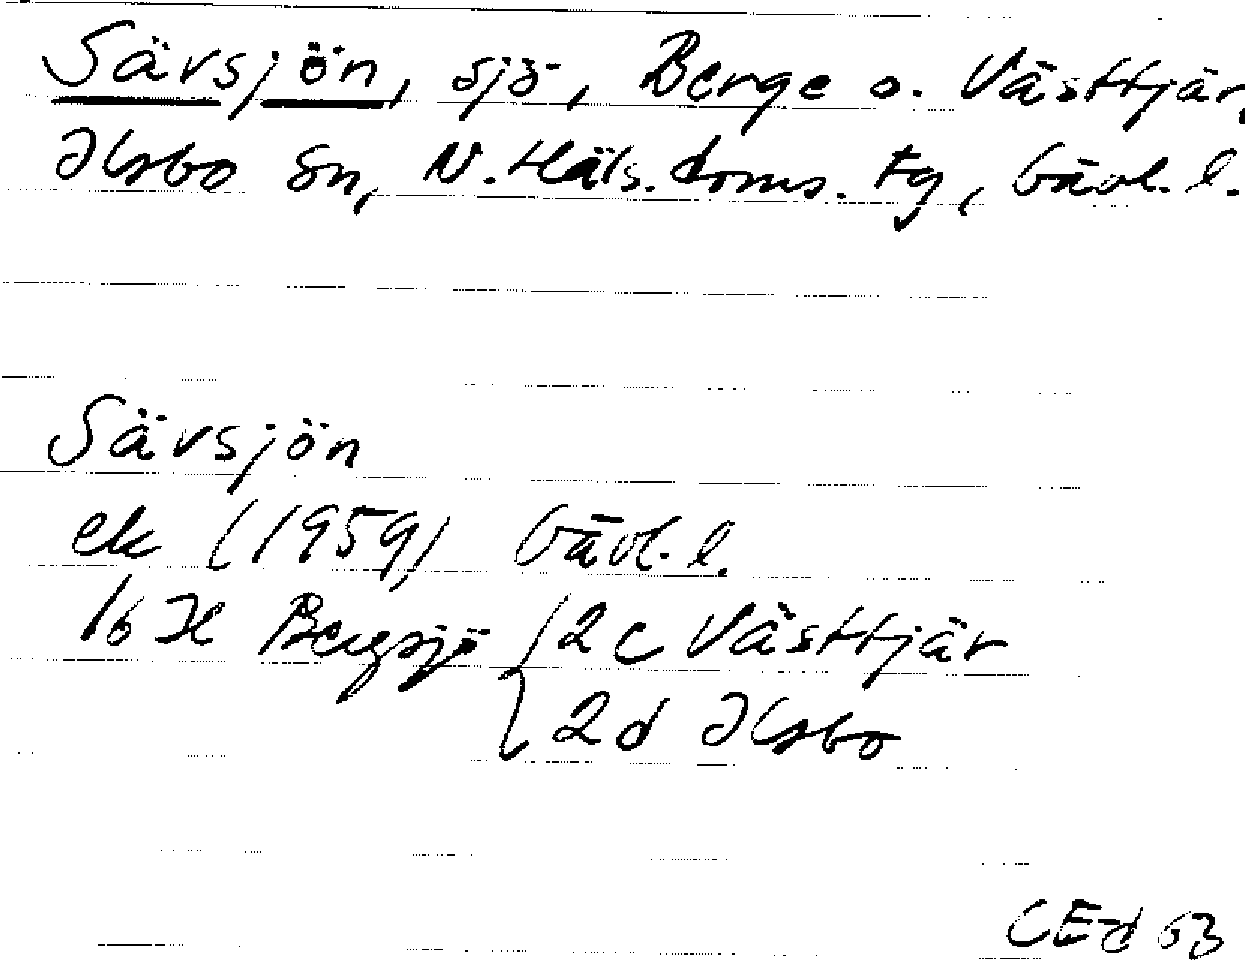 Sävsjön, sjö, Berge o. Västtjär,
Ilsbo sn, N. Häls. doms. tg, Gävl. l.
Sävsjön
ek (1959) Gävl. l.
16 H Bergsjö { 2 c Västtjär
2 d Ilsbo
CEd 63